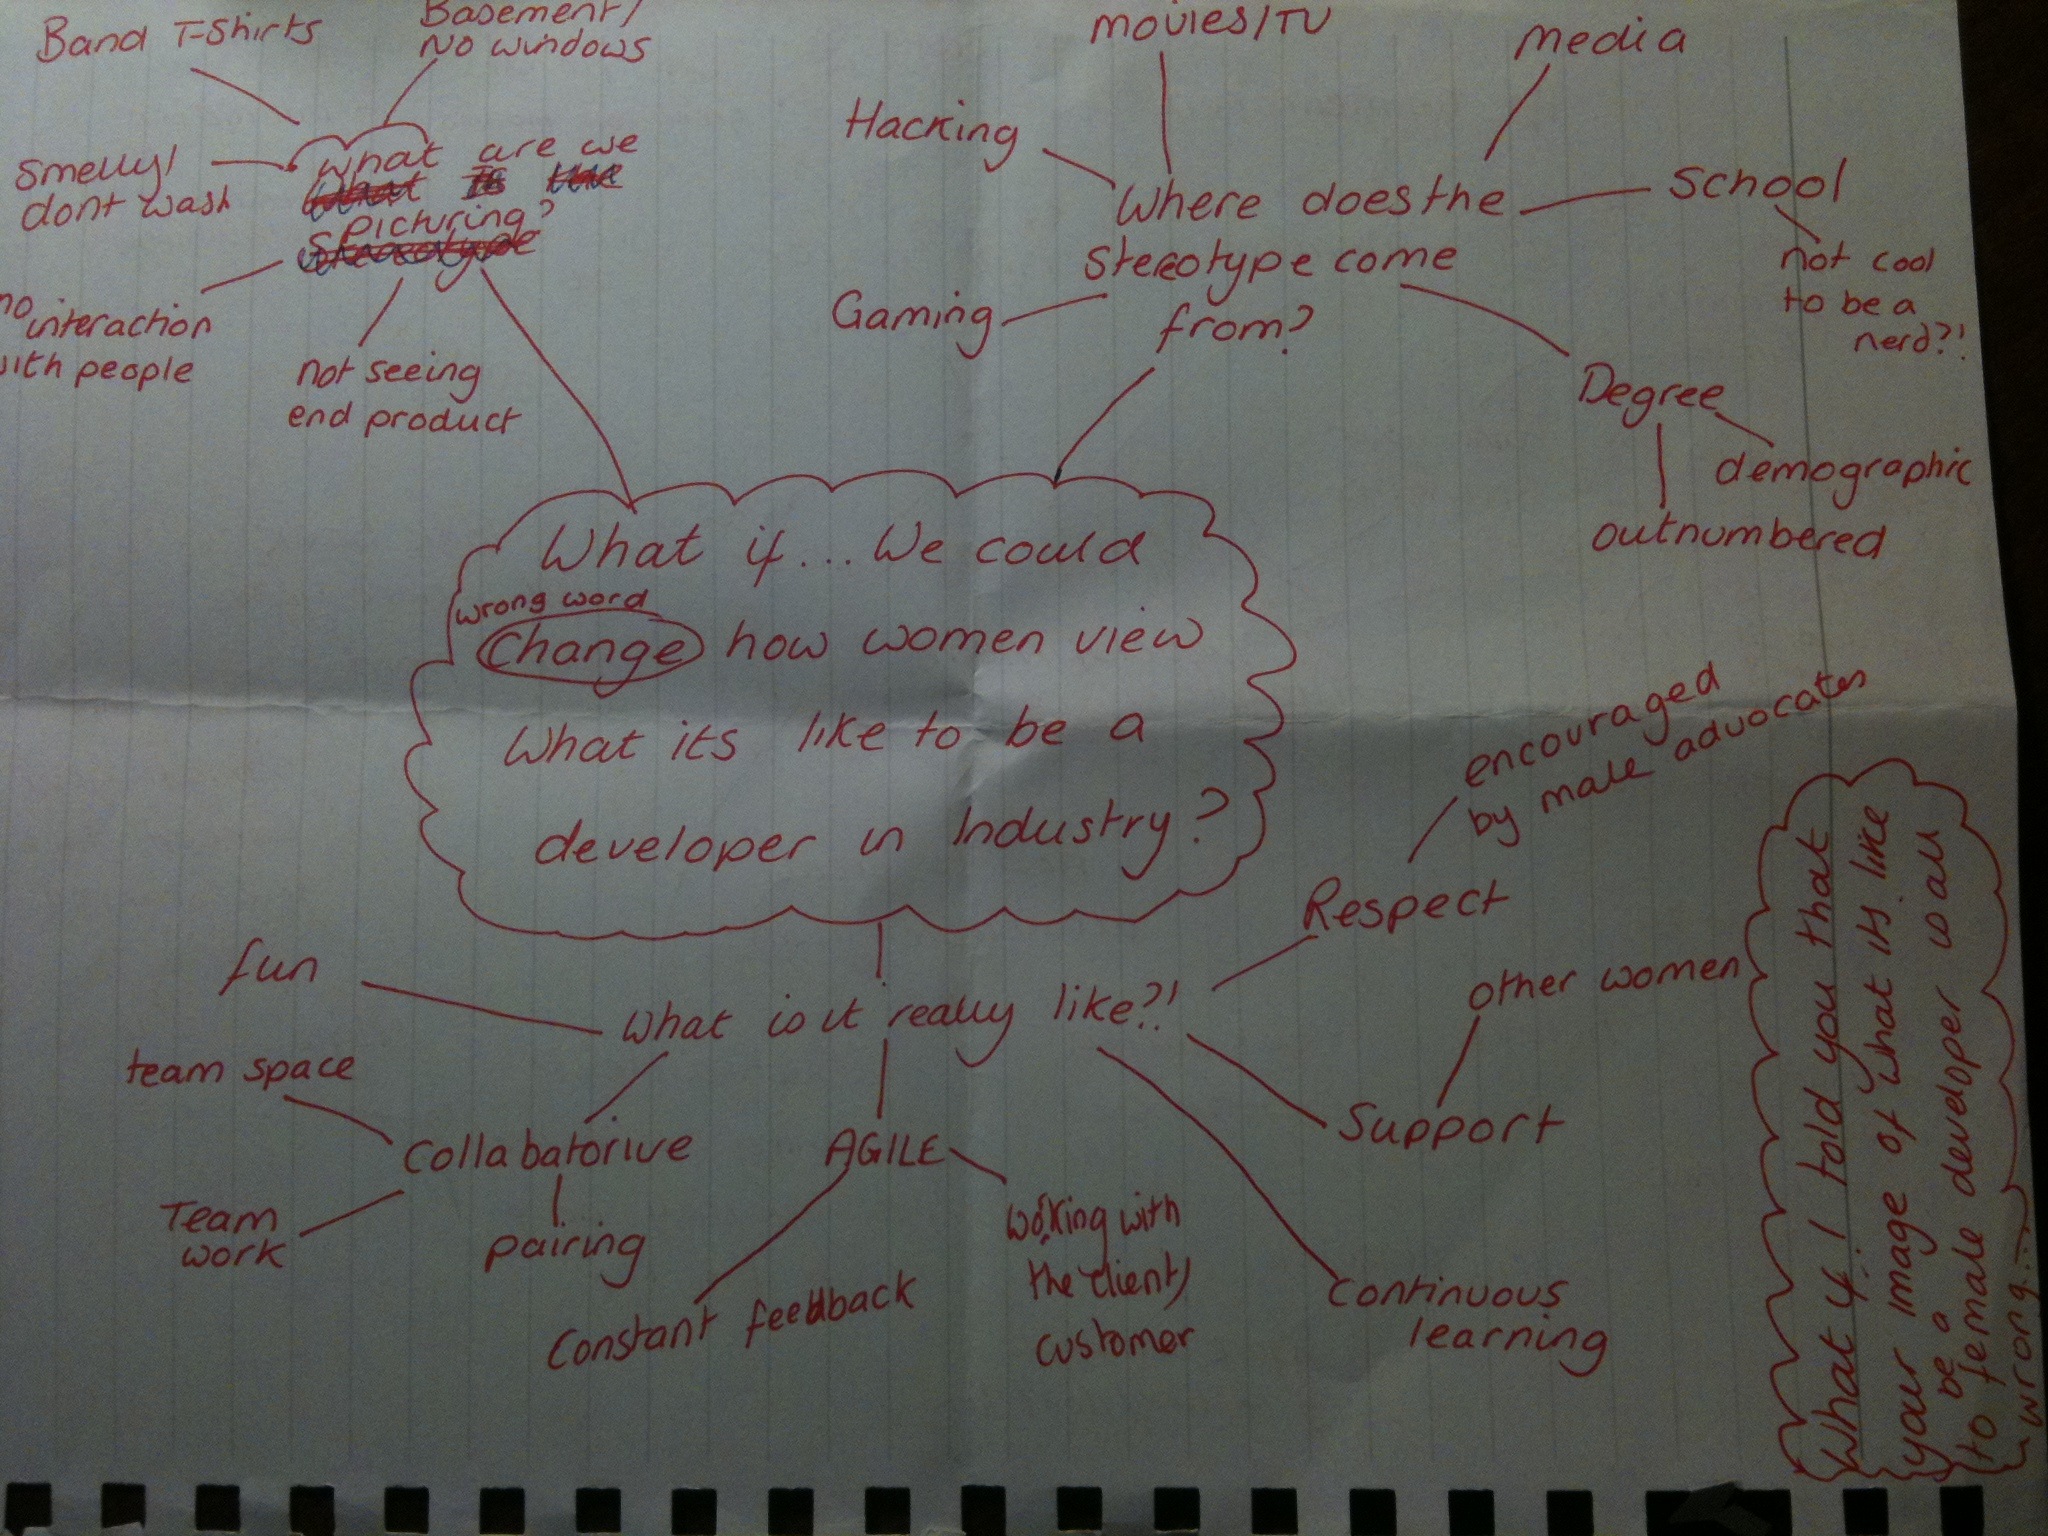 Band T-Shirts
Basement/
No windows
smelly/
dont wash
What are we
What is the
picturing?
stereotype
no interaction
with people
not seeing
end product
movies/TV
media
Hacking
Where does the
stereotype come
from?
School
not cool
to be a
nerd?!
Gaming
Degree
demographic
outnumbered
What if... We could
wrong word
Change how women view
What its like to be a
developer in Industry?
encouraged
by male advocates
Respect
other women
fun
What is it really like?!
team space
Collabatorive
AGILE
Support
Team
work
pairing
Constant feedback
working with
the client/
customer
Continuous
learning
What if I told you that
your image of what its like
to be a female developer was all
wrong...